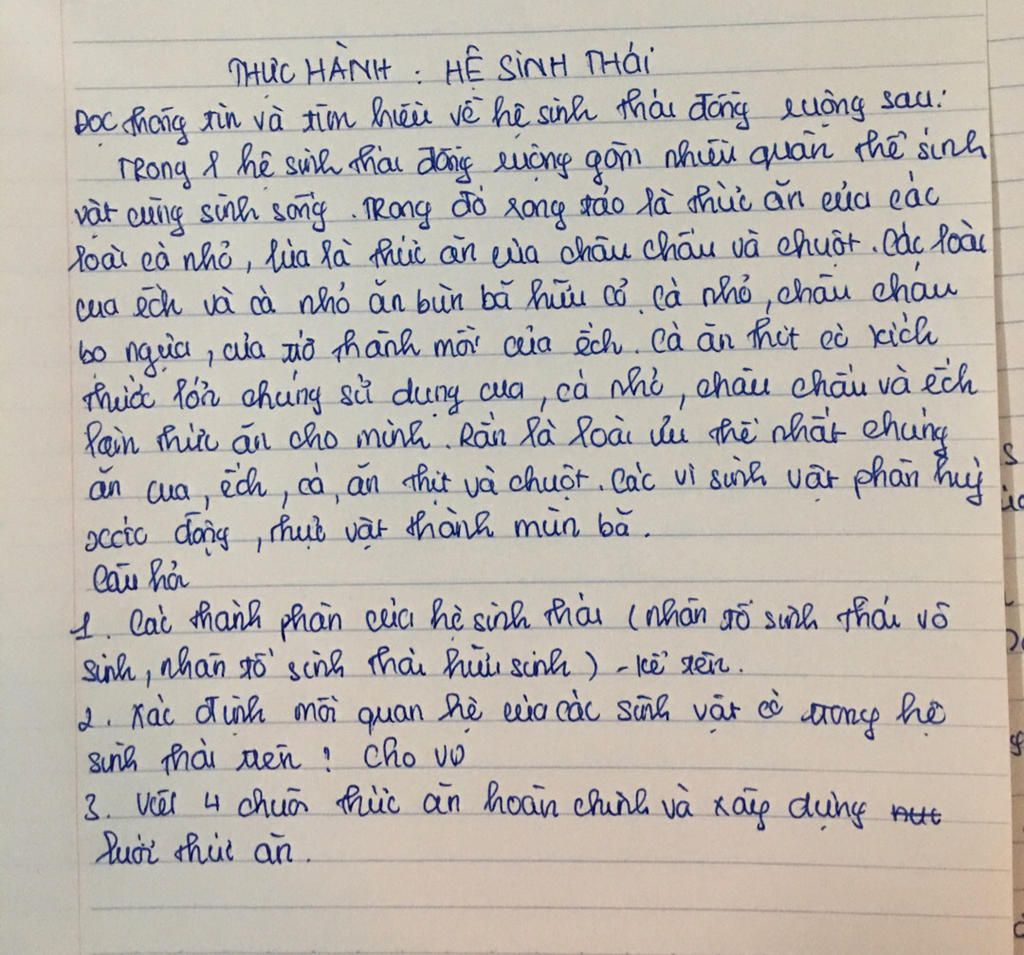 THỰC HÀNH : HỆ SINH THÁI
Đọc thông tin và tìm hiểu về hệ sinh thái đồng ruộng sau:
Trong 1 hệ sinh thái đồng ruộng gồm nhiều quần thể sinh
vật cùng sinh sống. Trong đó rong tảo là thức ăn của các
loài cá nhỏ, lúa là thức ăn của châu chấu và chuột. Các loài
cua ếch và cá nhỏ ăn bùn bã hữu cơ. Cá nhỏ, châu chấu
bọ ngựa, cua trở thành mồi của ếch. Cá ăn thịt có kích
thước lớn chúng sử dụng cua, cá nhỏ, châu chấu và ếch
làm thức ăn cho mình. Rắn là loài ưu thế nhất chúng
ăn cua, ếch, cá, ăn thịt và chuột. Các vi sinh vật phân huỷ
xác động, thực vật thành mùn bã.
Câu hỏi
1. Các thành phần của hệ sinh thái (nhân tố sinh thái vô
sinh, nhân tố sinh thái hữu sinh) - kể tên.
2. Xác định mối quan hệ của các sinh vật có trong hệ
sinh thái trên ? Cho VD
3. Viết 4 chuỗi thức ăn hoàn chỉnh và xây dựng
lưới thức ăn.